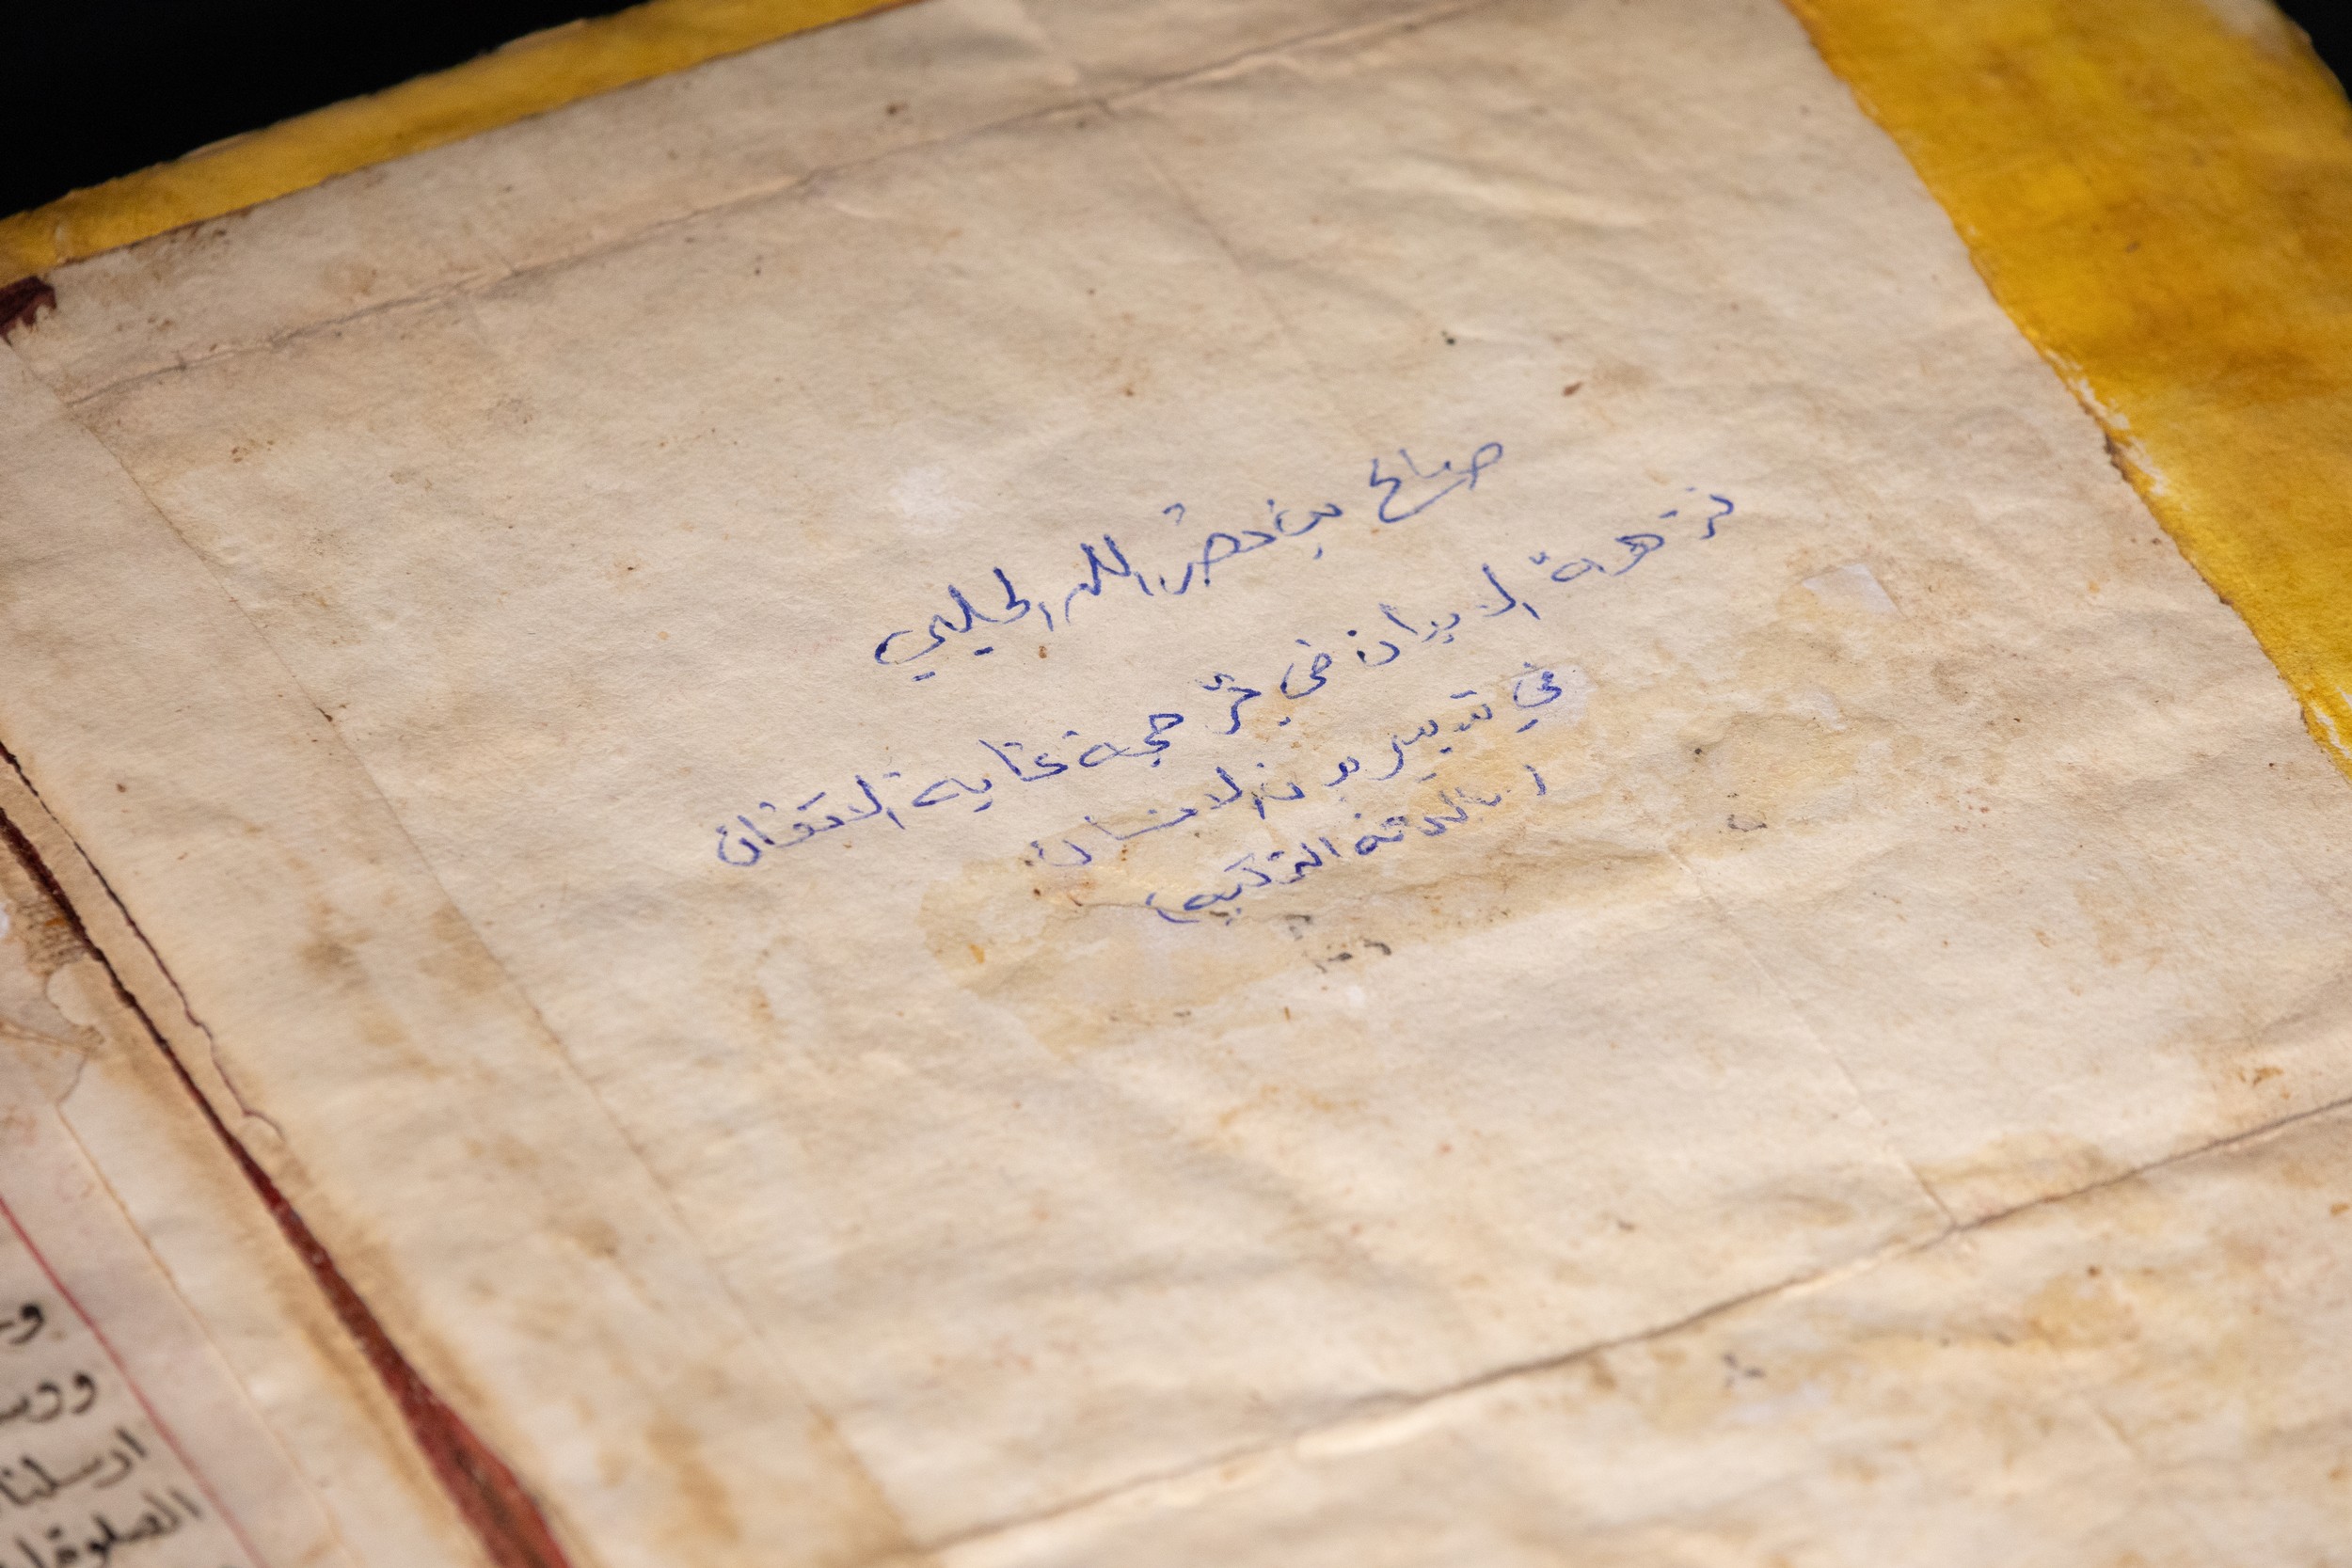 صالح بن نصر الله الحلبي
نزهة الابدان في ترجمة غاية الاتقان
في تدبير بدن الانسان
(باللغة التركية)
ارسلنا